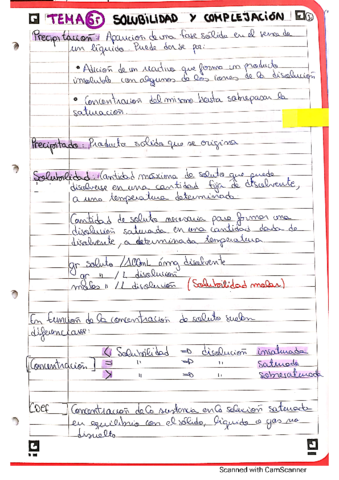 TEMA 6: SOLUBILIDAD Y COMPLEJACIÓN
Precipitación: Aparición de una fase sólida en el seno de
un líquido. Puede darse por:
• Adición de un reactivo que forma un producto
insoluble con algunos de los iones de la disolución
• Concentración del mismo hasta sobrepasar la
saturación.
Precipitado: Producto sólido que se origina
Solubilidad: Cantidad máxima de soluto que puede
disolverse en una cantidad fija de disolvente,
a una temperatura determinada
Cantidad de soluto necesaria para formar una
disolución saturada, en una cantidad dada de
disolvente, a determinada temperatura
gr soluto /100mL ó mg disolvente
gr " / L disolución
moles " / L disolución (Solubilidad molar)
En función de la concentración de soluto suelen
diferenciarse:
< Solubilidad ⇒ disolución insaturada
[Concentración] = " ⇒ " saturada
> " ⇒ " sobresaturada
Concentración de la sustancia en la solución saturada
en equilibrio con el sólido, líquido o gas no
disuelto
Scanned with CamScanner